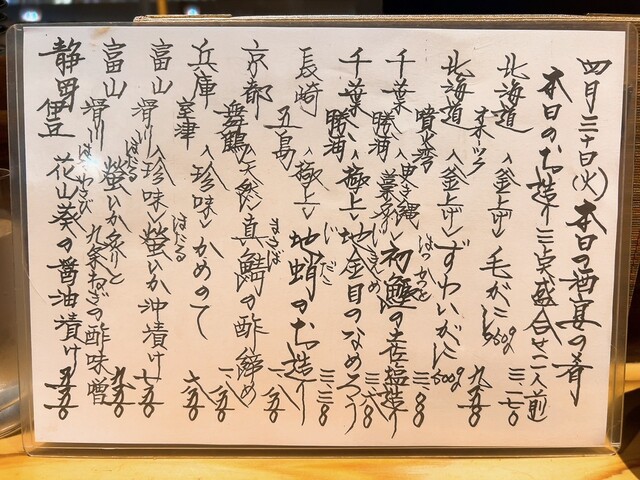 四月三十日(火) 本日の酒宴の肴
本日のお造り三点盛合せ二人前 三、一七〇
北海道 オホーツク 〈釜上げ〉 毛がに 550g 九、五〇
北海道 噴火湾 〈釜上げ〉 ずわいがに 500g
千葉 勝浦 はつがつお 初鰹の土佐塩造り 三、一八〇
千葉 勝浦 〈極上〉 じきんめ 地金目のなめろう 三、一八〇
長崎 五島 〈極上〉 じだこ 地蛸のお造り 三、三〇
京都 舞鶴 〈天然〉 まさば 真鯖の酢締め
兵庫 室津 〈珍味〉 かめのて
富山 滑川 〈珍味〉 ほたる 螢いか沖漬け 七五〇
富山 滑川 ほたる 螢いか炙りと九条ねぎの酢味噌 九五〇
静岡 伊豆 はなわさび 花山葵の醤油漬け 五五〇